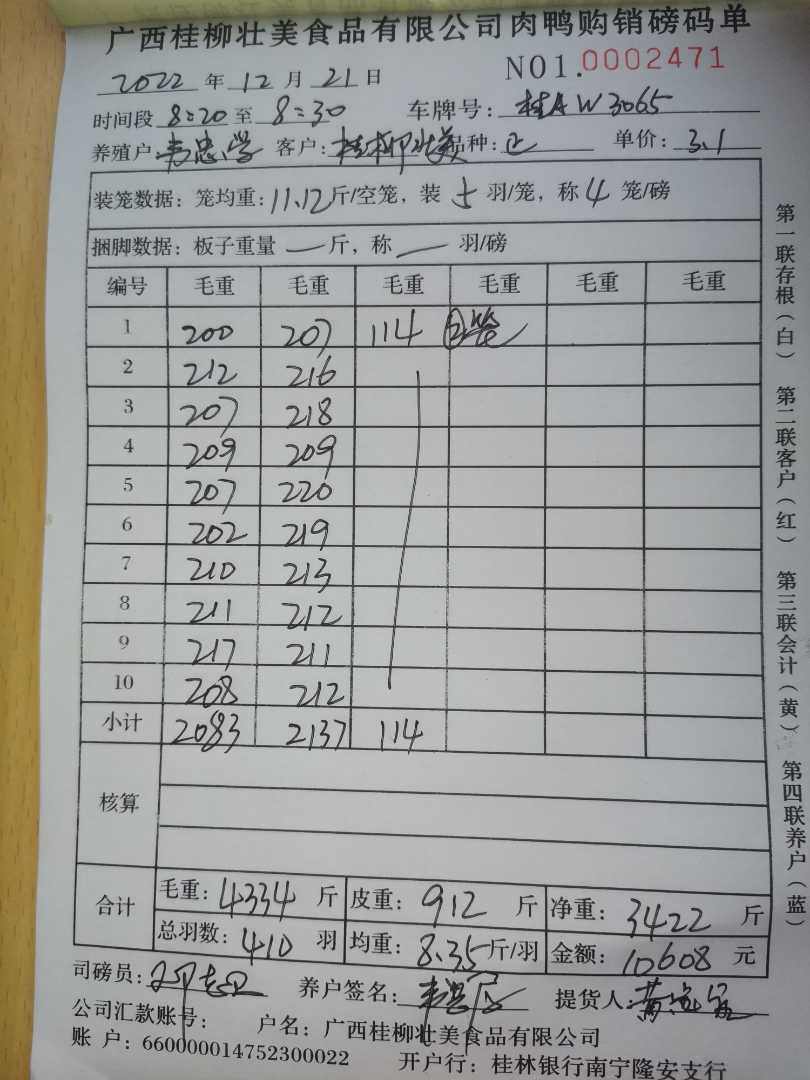 广西桂柳壮美食品有限公司肉鸭购销磅码单
2022 年 12 月 21 日 NO1.0002471
时间段 8:20 至 8:30 车牌号: 桂AW3065
养殖户: 韦忠学 客户: 桂柳壮美 品种: 单价: 3.1
装笼数据: 笼均重: 11.12 斤/空笼, 装 羽/笼, 称 4 笼/磅
捆脚数据: 板子重量 — 斤, 称 — 羽/磅
编号 毛重 毛重 毛重 毛重 毛重 毛重
1 200 207 114 ②笼
2 212 216
3 207 218
4 209 209
5 207 220
6 202 219
7 210 213
8 211 212
9 217 211
10 208 212
小计 2083 2137 114
核算
合计 毛重: 4334 斤 皮重: 912 斤 净重: 3422 斤
总羽数: 410 羽 均重: 8.35 斤/羽 金额: 10608 元
司磅员: 养户签名: 提货人:
公司汇款账号: 户名: 广西桂柳壮美食品有限公司
账 户: 660000014752300022 开户行: 桂林银行南宁隆安支行
第一联存根(白) 第二联客户(红) 第三联会计(黄) 第四联养户(蓝)